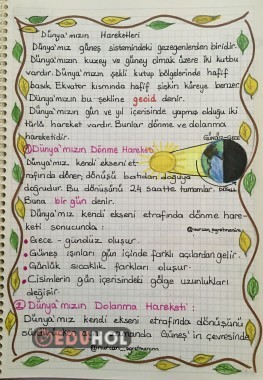 Dünya'mızın Hareketleri
Dünya'mız güneş sistemindeki gezegenlerden biridir.
Dünya'mızın kuzey ve güney olmak üzere iki kutbu
vardır. Dünya'mızın şekli kutup bölgelerinde hafif
basık Ekvator kısmında hafif şişkin küreye benzer.
Dünya'mızın bu şekline geoid denir.
Dünya'mızın gün ve yıl içerisinde yapmış olduğu iki
türlü hareket vardır. Bunlar dönme ve dolanma
hareketidir.
1 Dünya'mızın Dönme Hareketi
Dünya'mız, kendi ekseni et-
rafında döner, dönüşü batıdan doğuya
doğrudur. Bu dönüşünü 24 saatte tamamlar.
Buna bir gün denir.
Dünya'mız kendi ekseni etrafında dönme hare-
keti sonucunda:
Gece - gündüz oluşur.
Güneş ışınları gün içinde farklı açılardan gelir.
Günlük sıcaklık farkları oluşur.
Cisimlerin gün içerisindeki gölge uzunlukları
değişir.
2 Dünya'mızın Dolanma Hareketi:
Dünya'mız kendi ekseni etrafında dönüşünü
Güneş'in çevresinde
EDUHOL